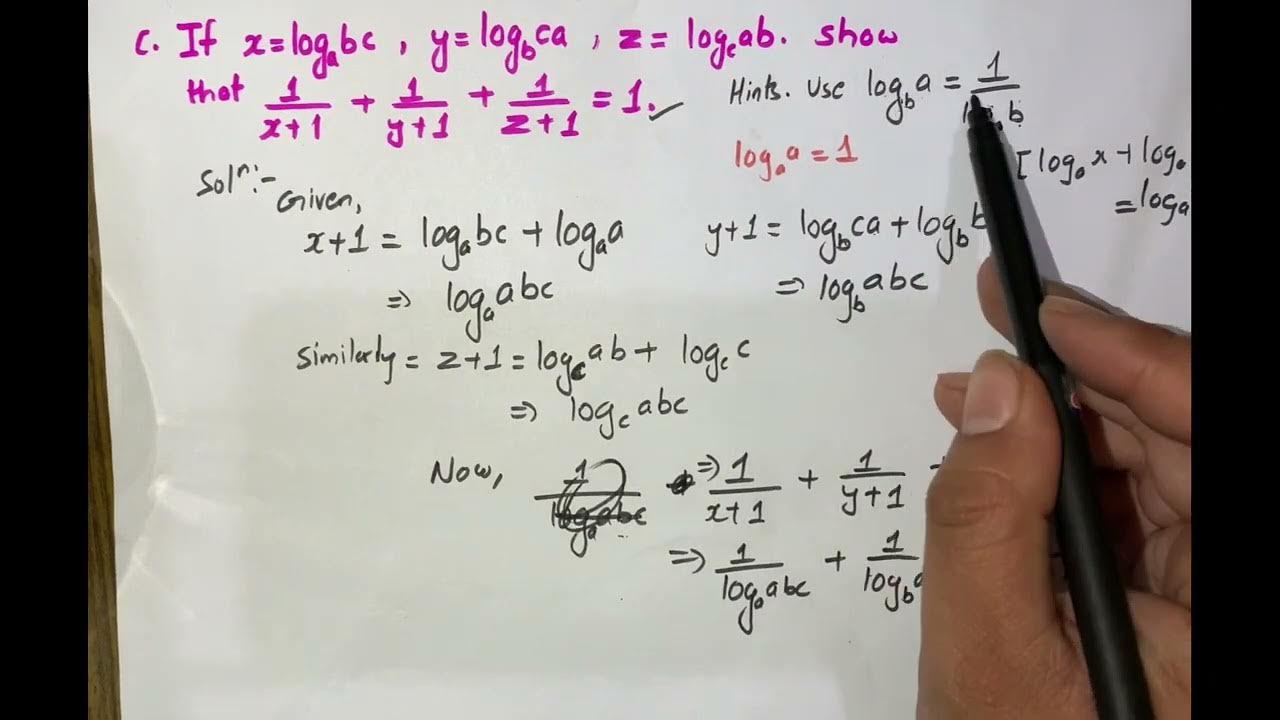 c. If x=logₐbc , y=log_b ca , z=log_c ab. show
that 1/(x+1) + 1/(y+1) + 1/(z+1) = 1.
Hints. Use log_b a = 1/
logₐa = 1
[logₐx + log
= log
Solⁿ:-
Given,
x+1 = logₐbc + logₐa
⇒ logₐabc
y+1 = log_b ca + log_b b
⇒ log_b abc
Similerly = z+1 = log_c ab + log_c c
⇒ log_c abc
Now,
⇒ 1/(x+1) + 1/(y+1)
⇒ 1/logₐabc + 1/log_b